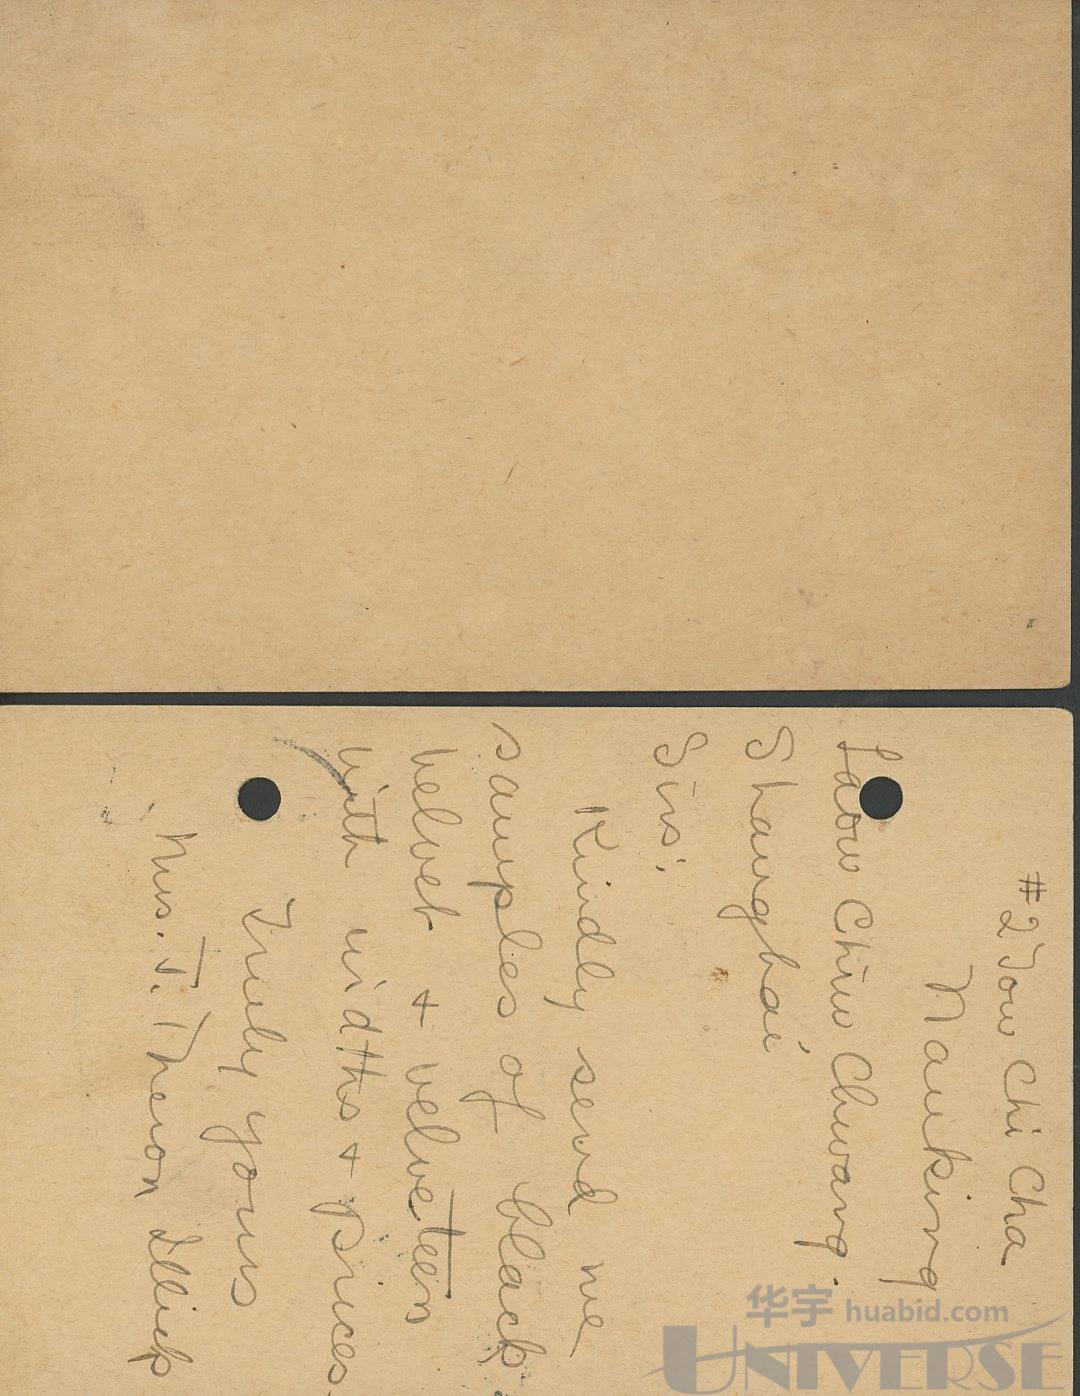 #2 Tow Chi Cha
Nanking
Laou Chiu Chwang.
Shanghai
Sirs:
Kindly send me
samples of black
velvet + velveteen
with widths + prices.
Truly yours
Mrs. J. Theron Illick
华宇 huabid.com
UNIVERSE